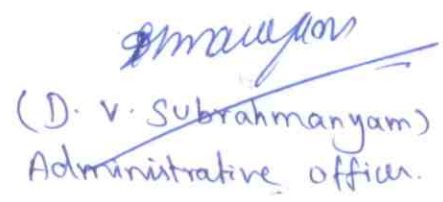 (D. V. Subrahmanyam)
Administrative officer.